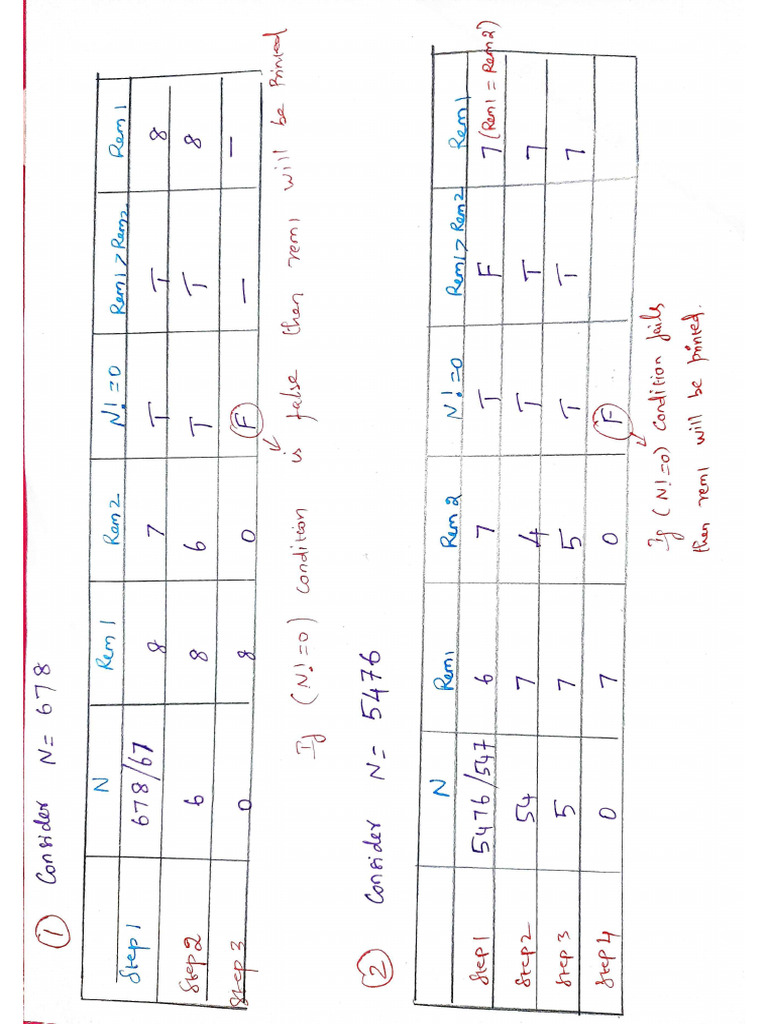 ① Consider N = 678
N Rem1 Rem2 N!=0 Rem1>Rem2 Rem1
Step1 678/67 8 7 T T 8
Step2 6 8 6 T T 8
Step3 0 8 0 F — —
If (N!=0) condition is false then rem1 will be Printed
② Consider N = 5476
N Rem1 Rem2 N!=0 Rem1>Rem2 Rem1
Step1 5476/547 6 7 T F 7 (Rem1 = Rem2)
Step2 54 7 4 T T 7
Step3 5 7 5 T T 7
Step4 0 7 0 F
If (N!=0) condition fails
then rem1 will be printed.